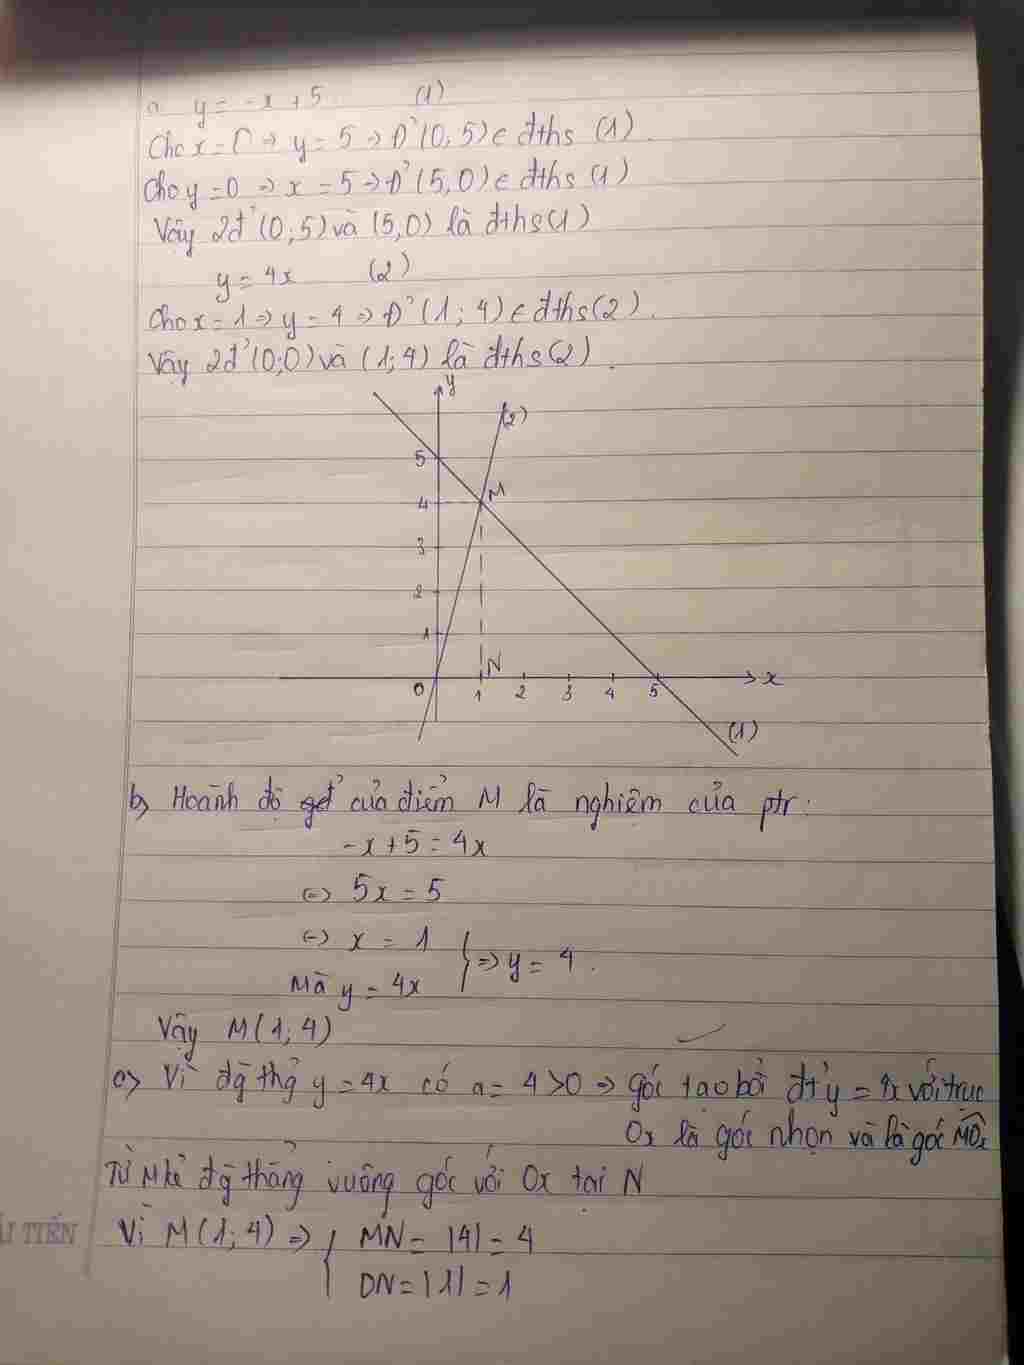 a. y = -x + 5 (1)
Cho x = 0 => y = 5 => Đ' (0, 5) ∈ đths (1).
Cho y = 0 => x = 5 => Đ' (5, 0) ∈ đths (1)
Vậy 2đ' (0; 5) và (5, 0) là đths (1)
y = 4x (2)
Cho x = 1 => y = 4 => Đ' (1; 4) ∈ đths (2).
Vậy 2đ' (0;0) và (1; 4) là đths (2).
y
(2)
5
M
4
3
2
1
N
0 1 2 3 4 5 x
(1)
b) Hoành độ của điểm M là nghiệm của ptr:
-x + 5 = 4x
<=> 5x = 5
<=> x = 1
Mà y = 4x } => y = 4.
Vậy M(1; 4)
c) Vì đg thg y = 4x có a = 4 > 0 => góc tạo bởi đt y = 4x với trục
Ox là góc nhọn và là góc MOx
Từ M kẻ đg thẳng vuông góc với Ox tại N
Vì M(1; 4) => { MN = |4| = 4
ON = |1| = 1
TIẾN